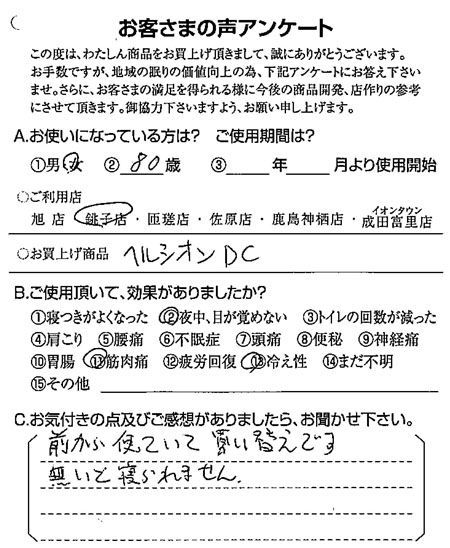 お客さまの声アンケート
この度は、わたしん商品をお買上げ頂きまして、誠にありがとうございます。
お手数ですが、地域の眠りの価値向上の為、下記アンケートにお答え下さい
ませ。さらに、お客さまの満足を得られる様に今後の商品開発、店作りの参考
にさせて頂きます。御協力下さいますよう、お願い申し上げます。
A.お使いになっている方は? ご使用期間は?
①男 女 ②80歳 ③年 月より使用開始
○ご利用店
イオンタウン
旭店・銚子店・匝瑳店・佐原店・鹿島神栖店・成田富里店
○お買上げ商品 ヘルシオンDC
B.ご使用頂いて、効果がありましたか?
①寝つきがよくなった ②夜中、目が覚めない ③トイレの回数が減った
④肩こり ⑤腰痛 ⑥不眠症 ⑦頭痛 ⑧便秘 ⑨神経痛
⑩胃腸 ⑪筋肉痛 ⑫疲労回復 ⑬冷え性 ⑭まだ不明
⑮その他
C.お気付きの点及びご感想がありましたら、お聞かせ下さい。
前から使っていて買い替えです
無いと寝られません。